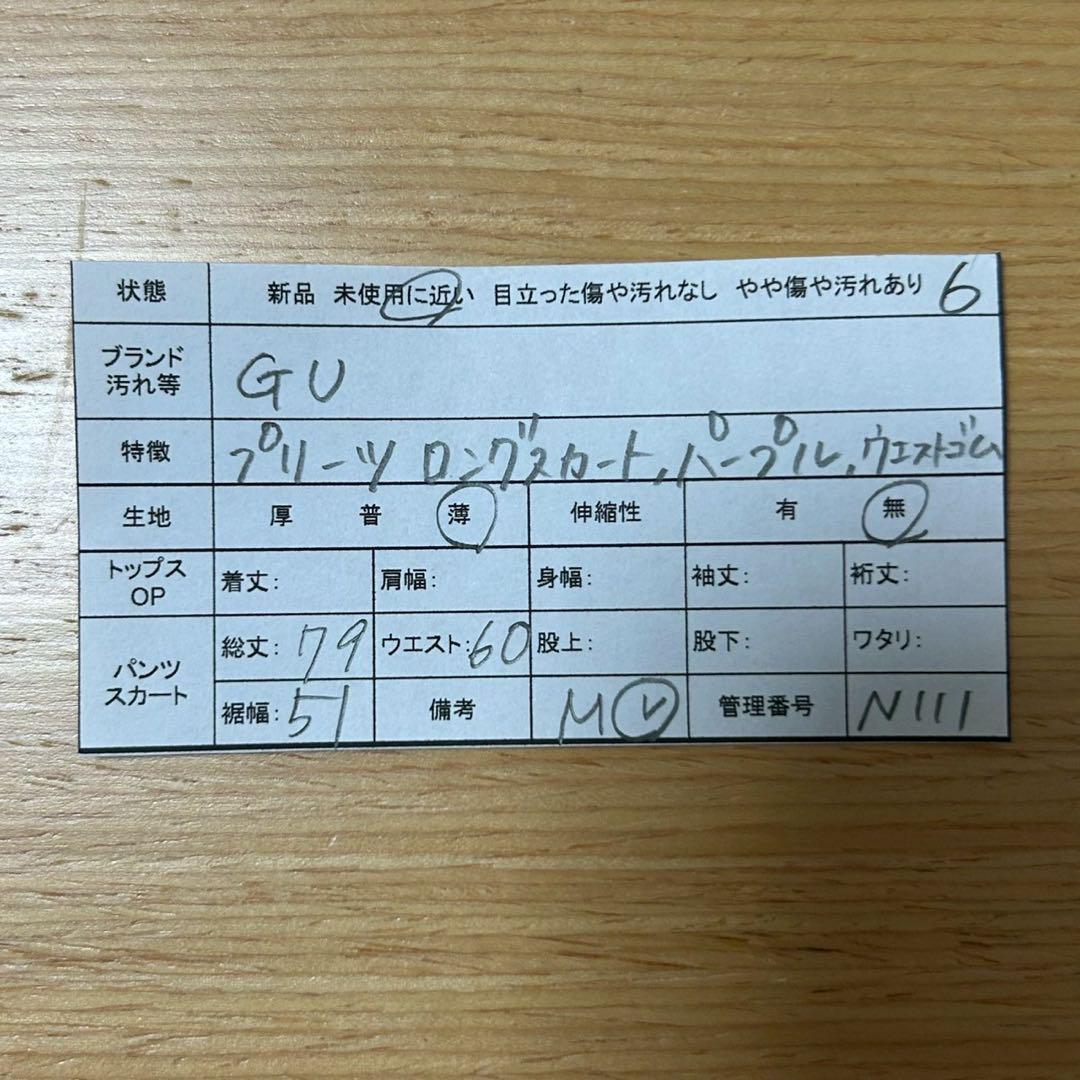 状態 新品 未使用に近い 目立った傷や汚れなし やや傷や汚れあり 6
ブランド
汚れ等 GU
特徴 プリーツ ロングスカート,パープル,ウエストゴム
生地 厚 普 薄 伸縮性 有 無
トップス
OP 着丈: 肩幅: 身幅: 袖丈: 裄丈:
パンツ
スカート 総丈: 79 ウエスト: 60 股上: 股下: ワタリ:
裾幅: 51 備考 M レ 管理番号 N111